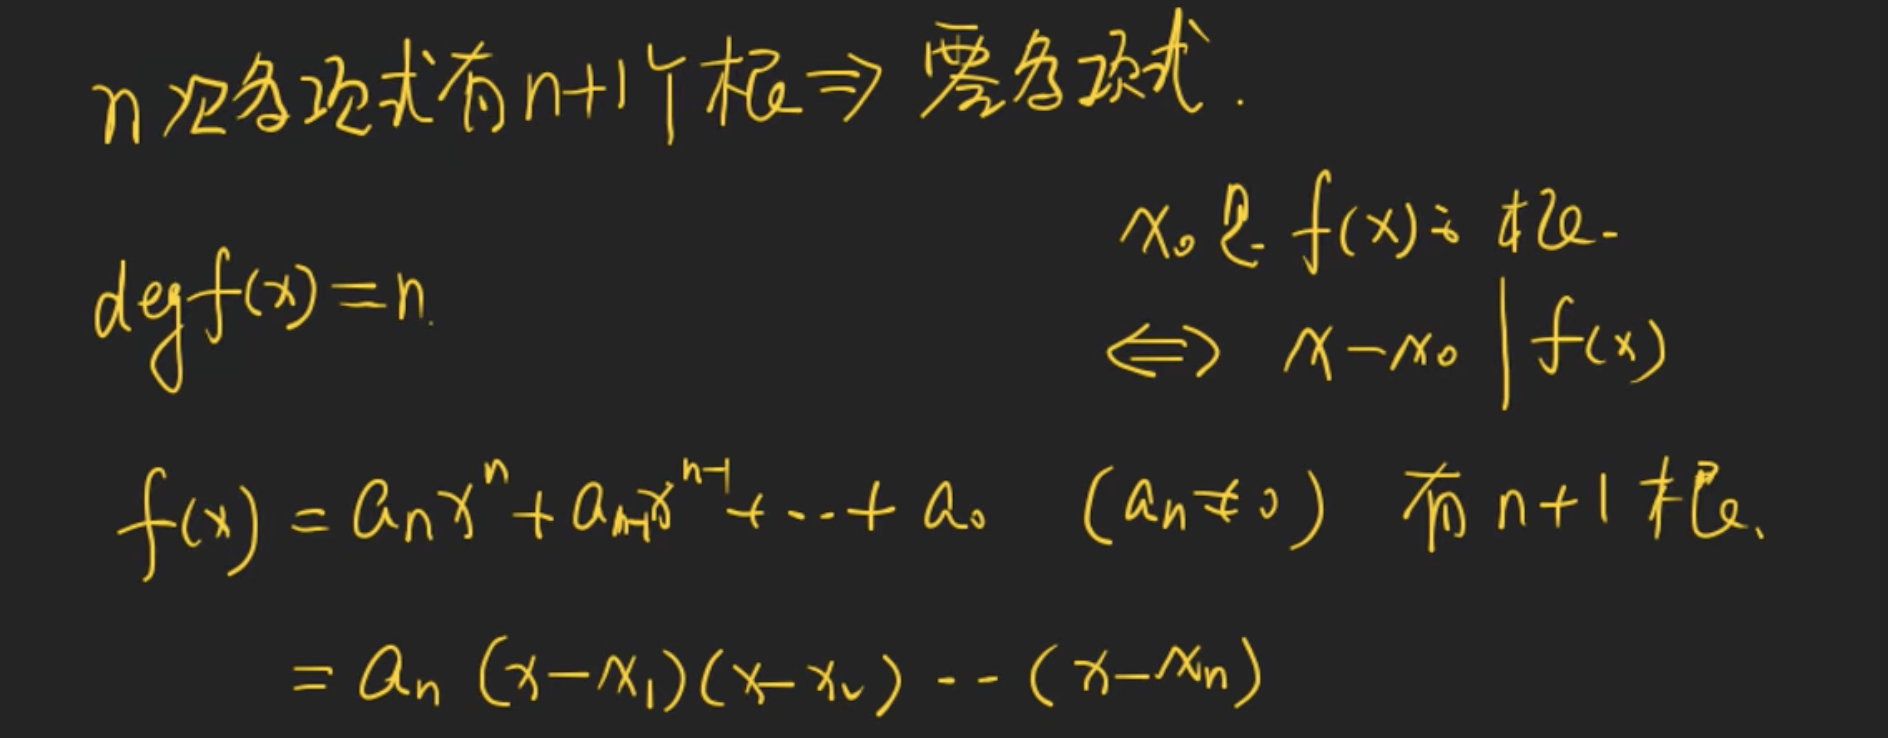 n次多项式有n+1个根⇒零多项式.
x₀是f(x)的根.
deg f(x)=n.
⇔ x-x₀ | f(x)
f(x) = aₙxⁿ + aₙ₋₁xⁿ⁻¹ + ... + a₀ (aₙ≠0) 有n+1根、
= aₙ (x-x₁)(x-x₂) -- (x-xₙ)